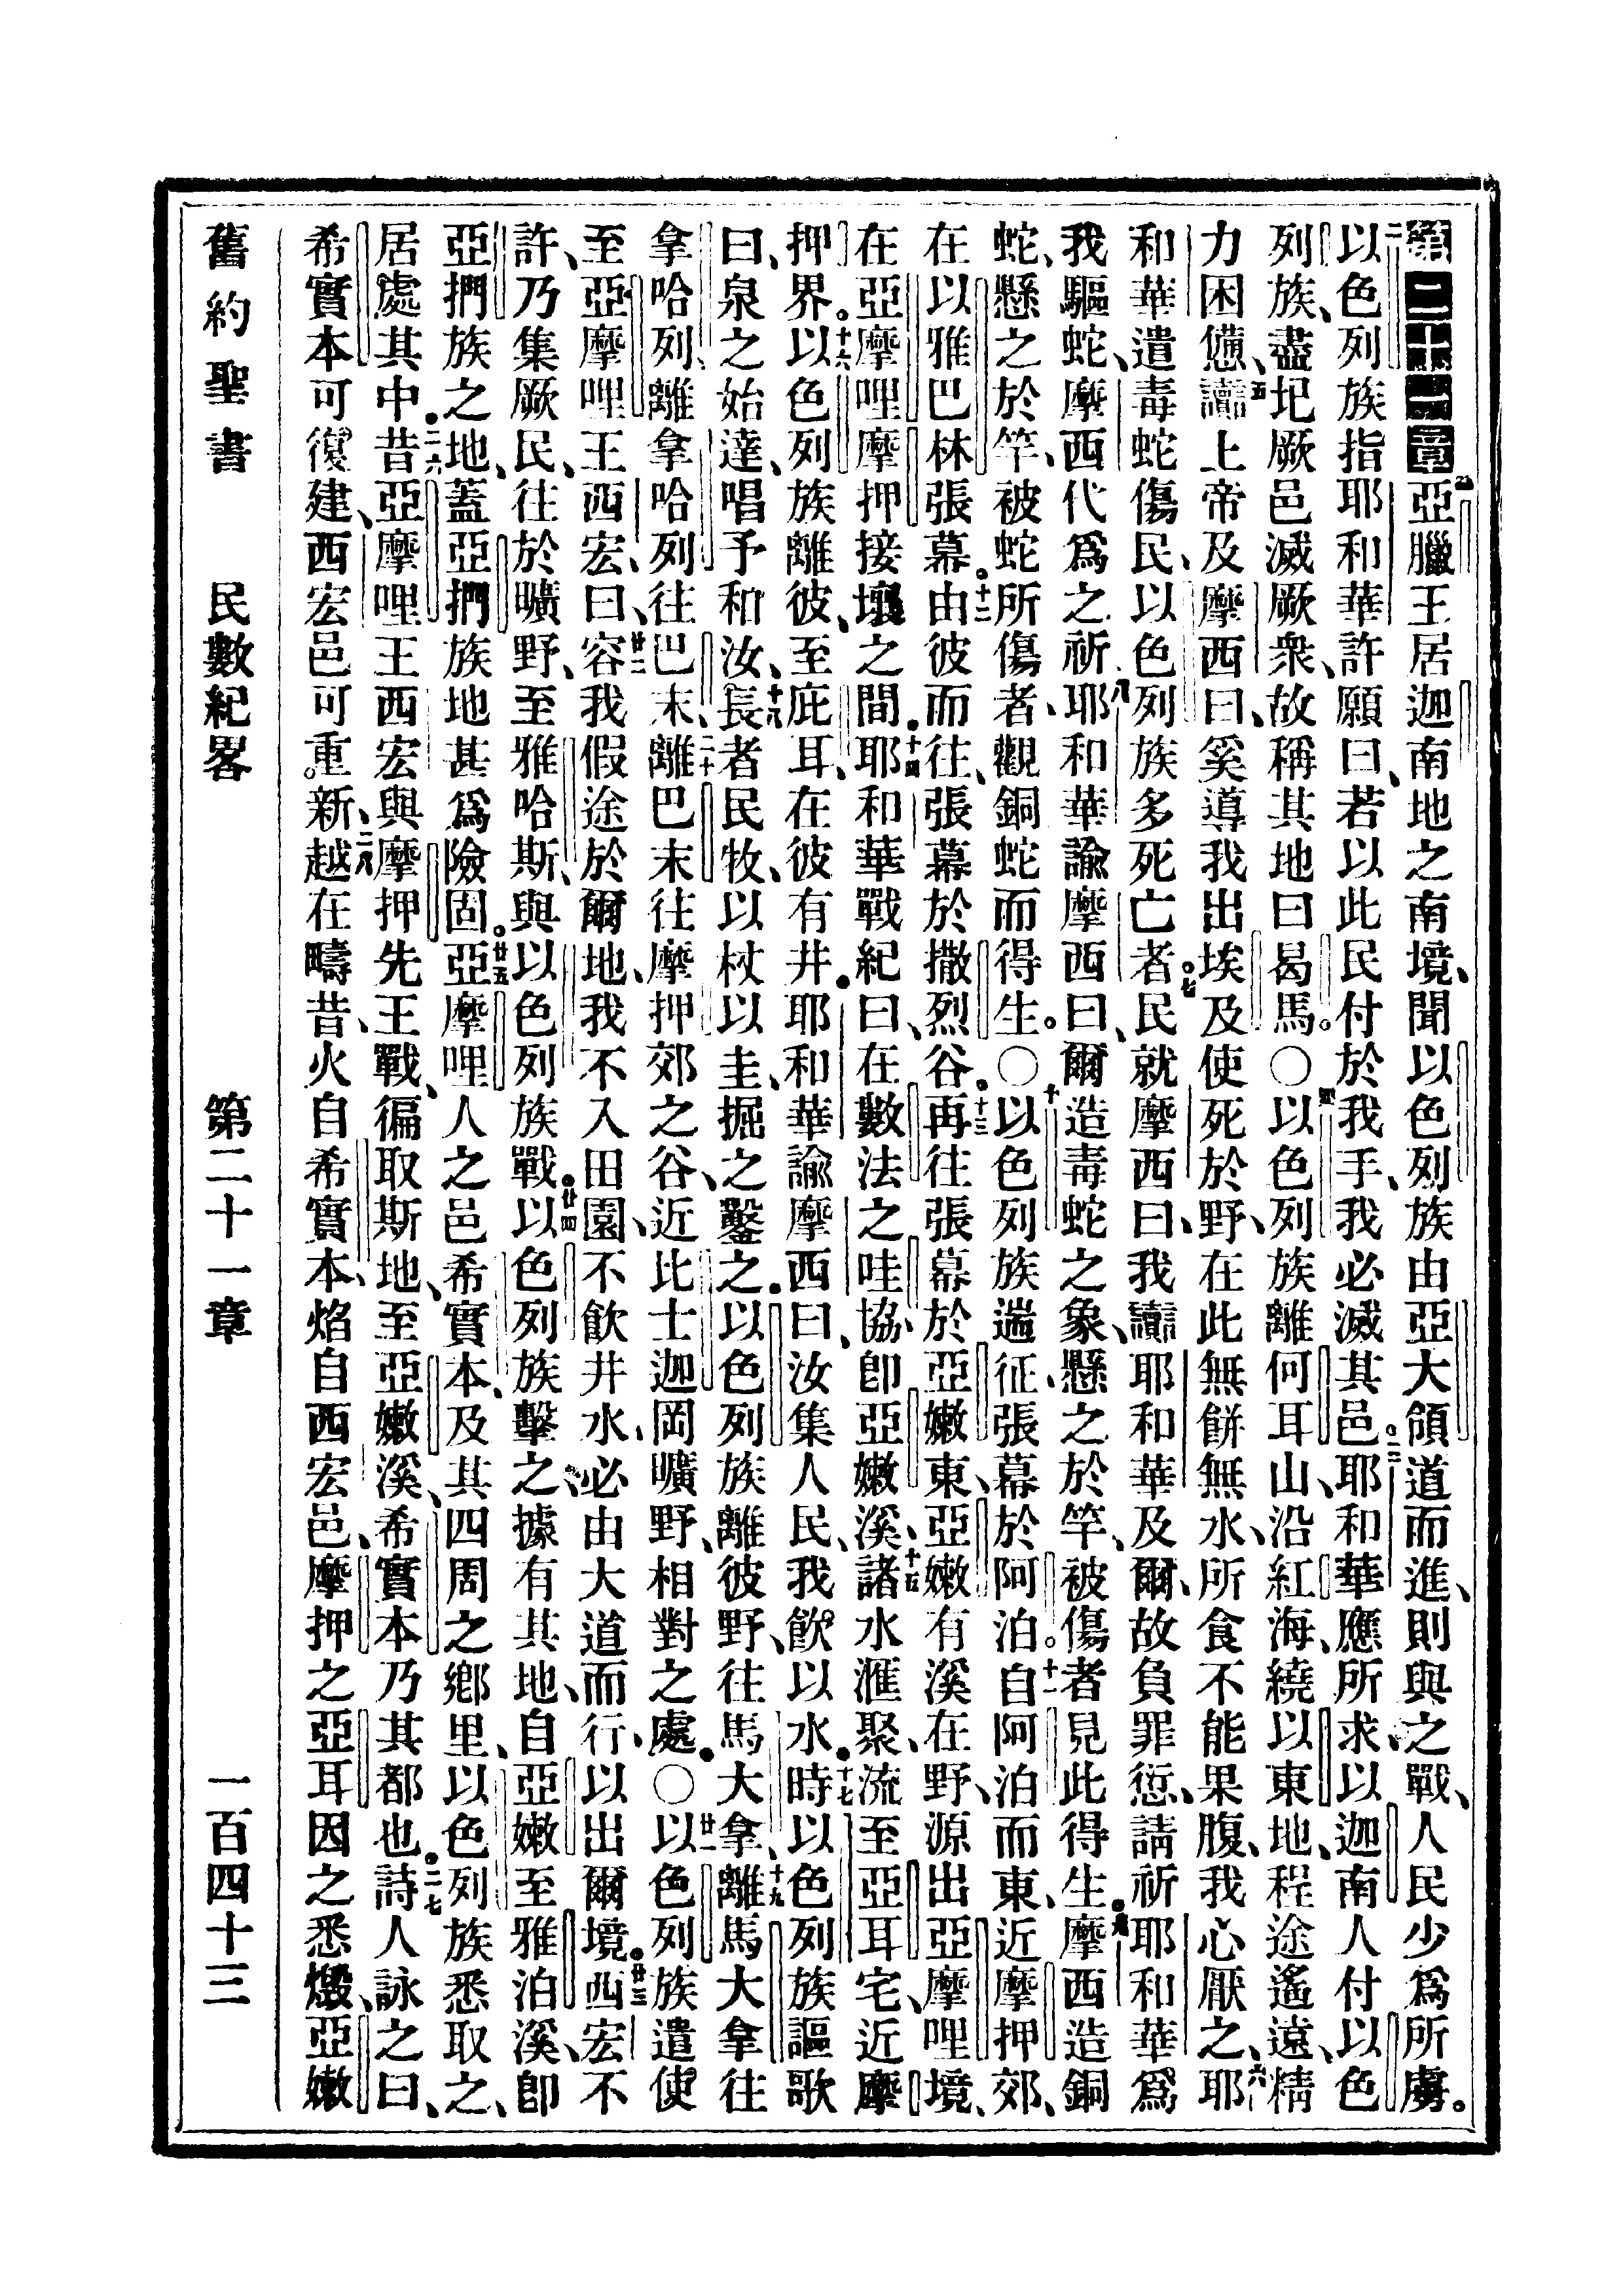 第二十一章亞臘王居迦南地之南境、聞以色列族由亞大領道而進、則與之戰、人民少爲所虜。
二以色列族指耶和華許願曰、若以此民付於我手、我必滅其邑。三耶和華應所求、以迦南人付以色
列族、盡圮厥邑滅厥衆、故稱其地曰曷馬。〇四以色列族離何耳山、沿紅海、繞以東地、程途遙遠、精
力困憊、五讟上帝及摩西曰、奚導我出埃及使死於野、在此無餅無水、所食不能果腹、我心厭之、六耶
和華遣毒蛇傷民、以色列族多死亡者。七民就摩西曰、我讟耶和華及爾、故負罪愆、請祈耶和華、爲
我驅蛇、摩西代爲之祈、八耶和華諭摩西曰、爾造毒蛇之象、懸之於竿、被傷者見此得生。九摩西造銅
蛇、懸之於竿、被蛇所傷者、觀銅蛇而得生。〇十以色列族遄征、張幕於阿泊。十一自阿泊而東、近摩押郊、
在以雅巴林張幕。十二由彼而往、張幕於撒烈谷。十三再往張幕於亞嫩東、亞嫩有溪在野、源出亞摩哩境、
在亞摩哩摩押接壤之間。十四耶和華戰紀曰、在數法之哇協、卽亞嫩溪、十五諸水滙聚、流至亞耳宅、近摩
押界。十六以色列族離彼、至庇耳、在彼有井。耶和華諭摩西曰、汝集人民、我飮以水。十七時以色列族謳歌
曰、泉之始達、唱予和汝、十八長者民牧、以杖以圭、掘之鑿之。以色列族離彼野、往馬大拿、十九離馬大拿往
拿哈列、離拿哈列往巴末、二十離巴末往摩押郊之谷、近比士迦岡曠野、相對之處。〇廿一以色列族遣使
至亞摩哩王西宏、曰、廿二容我假途於爾地、我不入田園、不飮井水、必由大道而行、以出爾境。廿三西宏不
許、乃集厥民、往於曠野、至雅哈斯、與以色列族戰。廿四以色列族擊之、據有其地、自亞嫩至雅泊溪、卽
亞捫族之地、蓋亞捫族地甚爲險固。廿五亞摩哩人之邑希實本、及其四周之鄕里、以色列族悉取之、
居處其中。二六昔亞摩哩王西宏與摩押先王戰、徧取斯地、至亞嫩溪、希實本乃其都也。二七詩人詠之曰、
希實本可復建、西宏邑可重新、二八越在疇昔、火自希實本、焰自西宏邑、摩押之亞耳因之悉燬、亞嫩
舊約聖書　民數紀畧　第二十一章　一百四十三